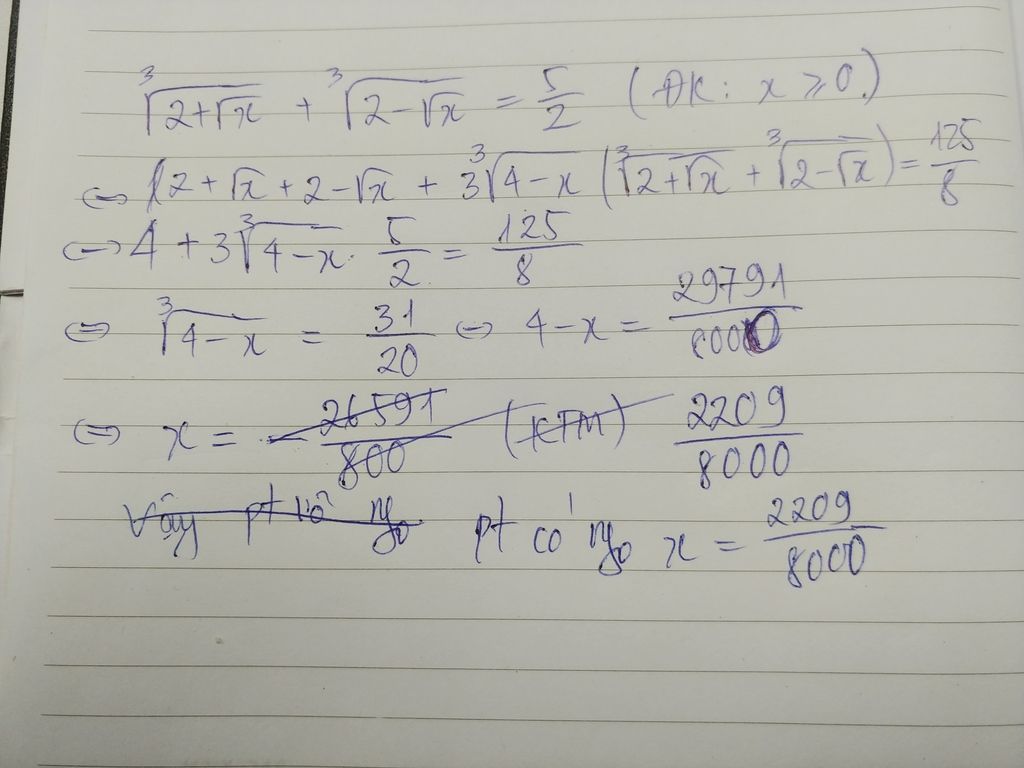 ∛(2+√x) + ∛(2-√x) = 5/2 (ĐK: x ≥ 0)
⇔ 2 + √x + 2 - √x + 3∛(4-x) (∛(2+√x) + ∛(2-√x)) = 125/8
⇔ 4 + 3∛(4-x) . 5/2 = 125/8
⇔ ∛(4-x) = 31/20 ⇔ 4-x = 29791/8000
⇔ x = - 26591/800 (KTM) 2209/8000
Vậy pt vô ng0 pt có ng0 x = 2209/8000